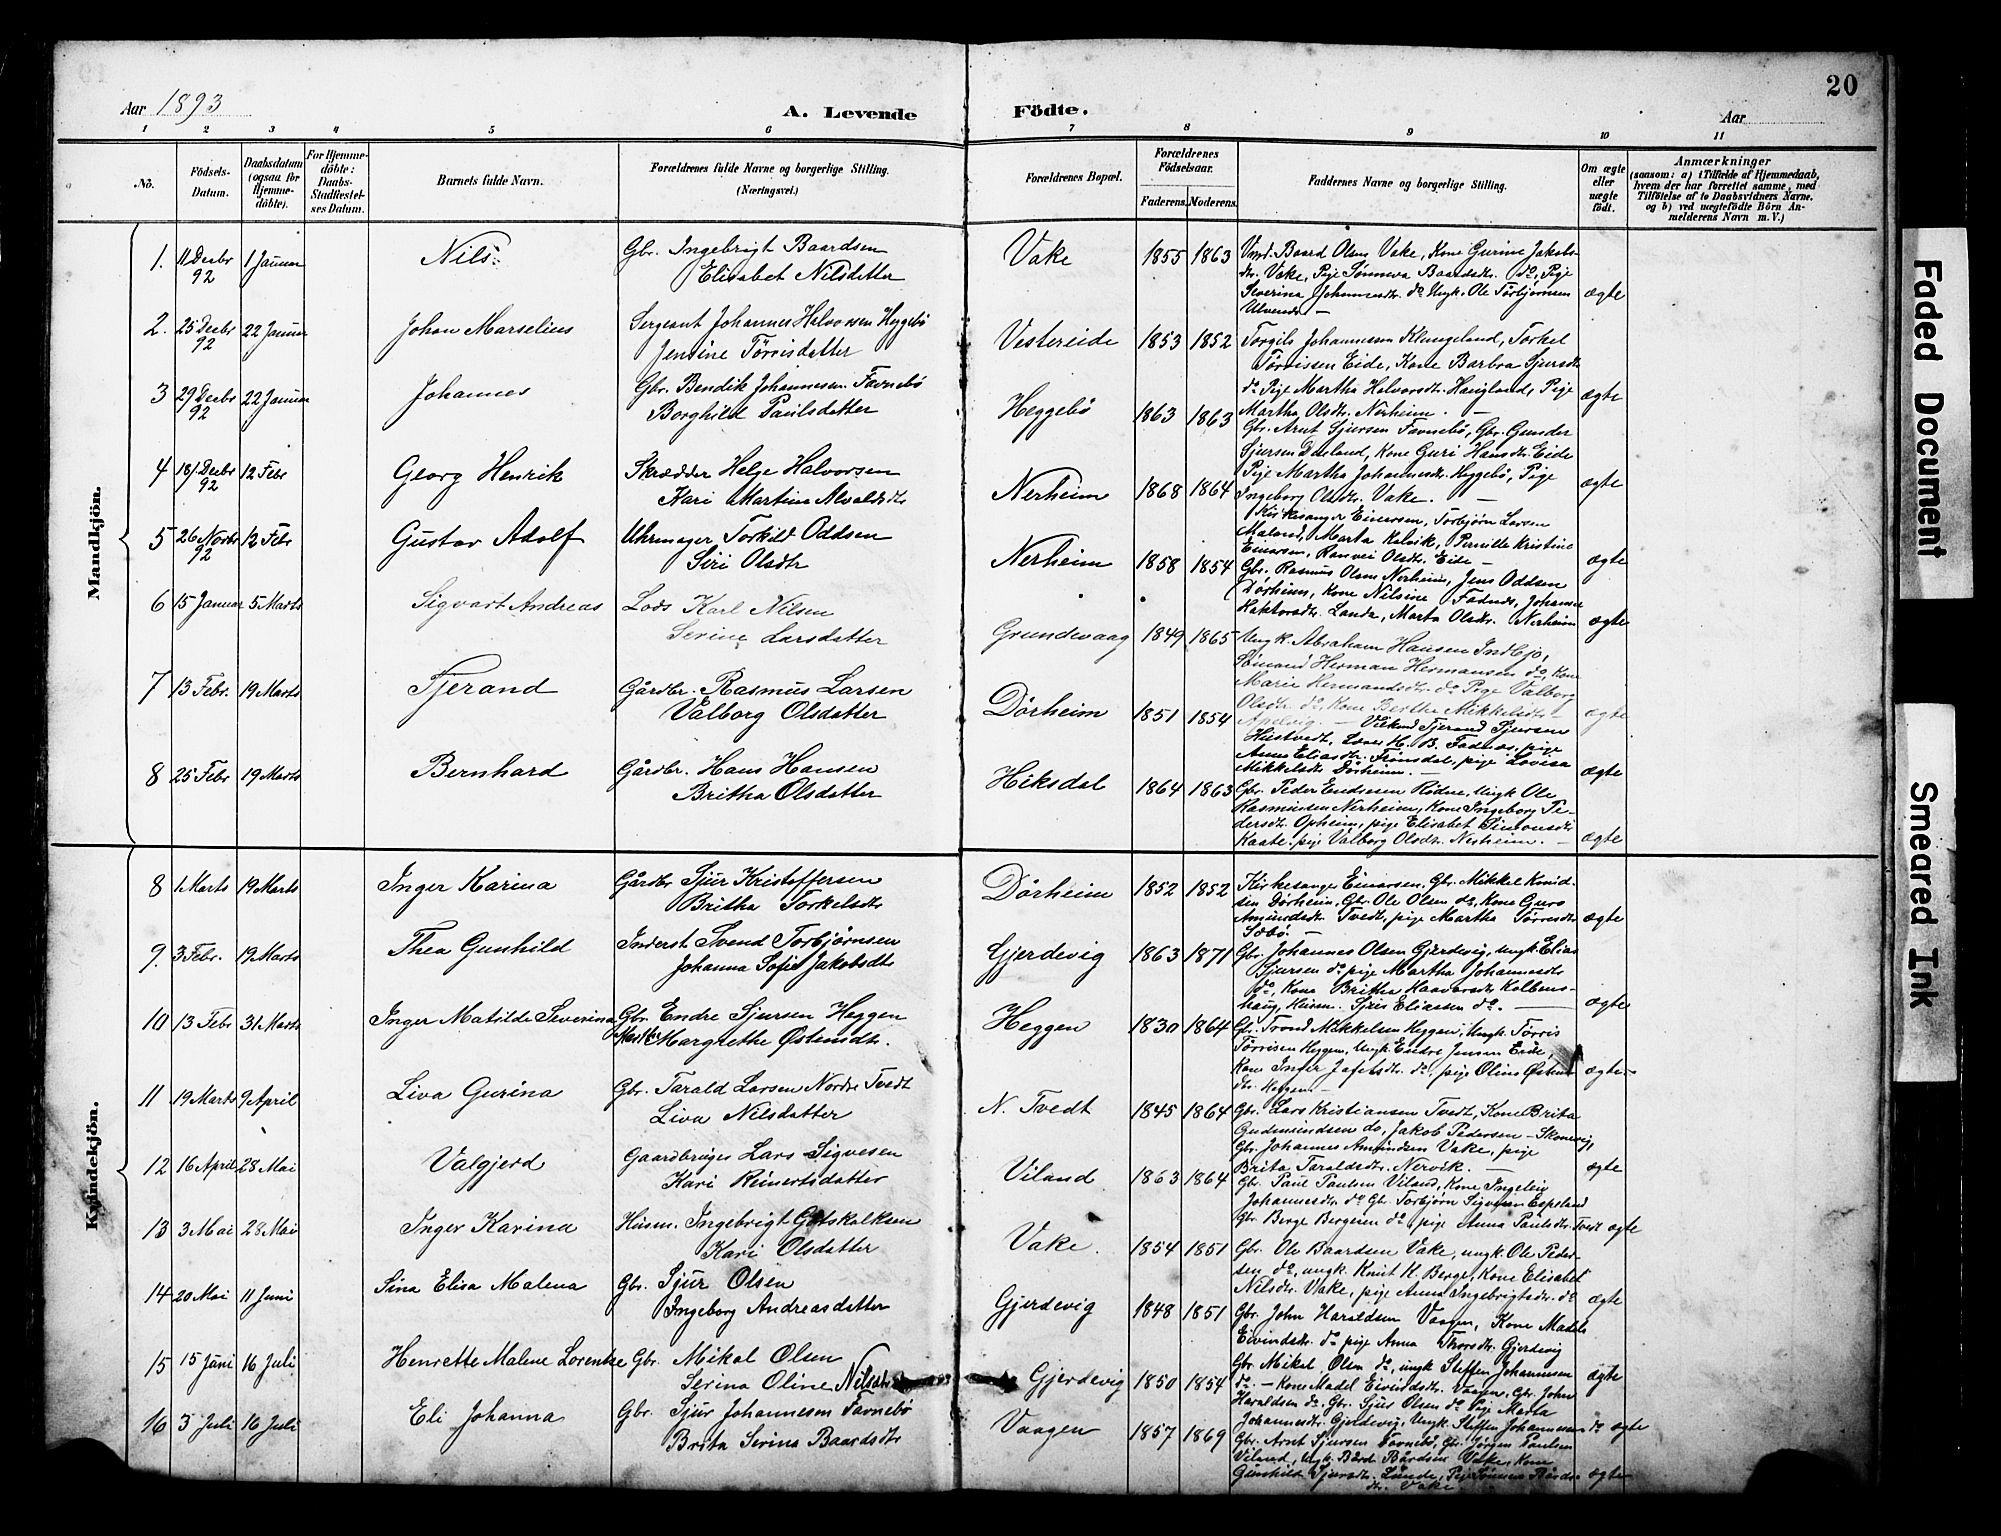 20
Aar 1893
A. Levende Födte.
Aar
1 2 3 4 5 6 7 8 9 10 11
No.
Födsels-Datum.
Daabsdatum (ogsaa for Hjemme-döbte).
For Hjemme-döbte: Daabs-Stadfæstel-ses Datum.
Barnets fulde Navn.
Forældrenes fulde Navne og borgerlige Stilling.
(Næringsvei.)
Forældrenes Bopæl.
Forældrenes Födselsaar.
Faderens. Moderens.
Faddernes Navne og borgerlige Stilling.
Om ægte eller uægte født.
Anmærkninger
(saasom: a) i Tilfælde af Hjemmedaab,
hvem der har forrettet samme, med
Tilföielse af to Daabsvidners Navne.
og b) ved uægtefödte Börn An-
melderens Navn m. V.)
Mandkjön.
1. 11 Decbr 92 1 Januar Nils Gbr. Ingebrigt Baardsen
Elisabet Nilsdatter Vake 1855 1863 ægte
Baard Olsen Vake, Kone Gurine Jakobs-
dtr. Vake, Pige Sønneva Baardsdtr. do, Pige
Severina Johannesdtr. do Ungk. Ole Torbjørnsen
2. 25 Decbr 92 22 Januar Johan Marselius Sergeant Johannes Halvorsen Heggebö
Jensine Törrisdatter Vestereide 1853 1852 ægte
Torgils Johannesen Klungeland, Torkel
Törrissen Eide, Kone Barbra Sjursdtr
do Pige Martha Halvorsdtr. Haugland, Pige
Martha Olsdtr. Nerheim.
3 29 Decbr 92 22 Januar Johannes Gbr. Bendik Johannesen Favnebö
Borghild Paulsdatter Heggebö 1863 1863 ægte
Gbr. Arnt Sjursen Favnebö, Gbr. Gunder
Sjursen Dasland, Kone Guri Hansdtr Eide
Pige Martha Johannesdtr. Heggebö, Pige
Ingeborg Olsdtr. Vake.
4 18 Decbr 92 12 Febr Georg Henrik Skrædder Helge Halvorsen
Kari Martine Nerheim 1868 1864 ægte
Kirkesanger Einarsen, Torbjørn Larsen
Maland, Marta Kelvik, Pernille Kristine
Einarsen, Ranvei Olsdtr. Eide
5 26 Novbr 92 12 Febr Gustav Adolf Uhrmager Torkild Oddsen
Siri Olsdtr Nerheim 1858 1854 ægte
Gbr. Rasmus Olsen Nerheim, Jens Oddsen
Dörheim, Kone Nilsine Fadnes, Johanna
Landa, Marta Olsdtr. Nerheim
6 15 Januar 5 Marts Sigvart Andreas Lods Karl Nilsen
Serine Larsdatter Grundevaag 1849 1865 ægte
Ungk. Abraham Hansen Indbjo,
Sømand Herman Hermansen do, Kone
Marie Hermandsdtr. do Pige Valborg
Olsdtr. do Kone Berthe Mikkelsdtr
Apelvig.
7 13 Febr. 19 Marts Tjerand Gårdbr. Rasmus Larsen
Valborg Olsdatter Dörheim 1851 1854 ægte
Tjerand Sjursen
Hustvedt, H. B. Fadnes, pige
Anne Eliasdtr. Frönsdal, pige Lovisa
Mikkelsdtr Dörheim.
8 25 Febr 19 Marts Bernhard Gårdbr. Hans Hansen
Britha Olsdatter Hiksdal 1864 1863 ægte
Gbr. Peder Endresen Rödne, Ungk Ole
Rasmussen Nerheim, Kone Ingeborg Pe-
dersdtr. Opheim, pige Elisabet Simonsdtr
Kaate. pige Valborg Olsdtr. Nerheim.
Kvindekjön.
8 1 Marts 19 Marts Inger Karina Gårdbr Sjur Kristoffersen
Britha Torkelsdtr Dörheim 1852 1852 ægte
Kirkesanger Einarsen. Gbr. Mikkel Knud-
sen Dörheim, Gbr. Ole Olsen do, Kone Guro
Amundsdtr Tvedt, pige Martha Törresdtr
Sæbö.
9. 3 Febr. 19 Marts Thea Gunhild Inderst Svend Torbjørnsen
Johanna Sofie Jakobsdtr Gjerdevig 1863 1871 ægte
Gbr. Johannes Olsen Gjerdevig, ungk. Elias
Sjursen do, pige Martha Johannesdtr
do, Kone Britha Haavarsdtr Kolbens-
haug, Husm. Sjur Eliassen do.
10 13 Febr 31 Marts Inger Matilde Severina Gbr. Endre Sjursen Heggen
Martha Margrethe Østensdtr. Heggen 1830 1864 ægte
Gbr. Trond Mikkelsen Heggen, Ungk. Törris
Törrisen Heggen, Ungk. Endre Jensen Eide,
Kone Inger Jafetsdtr. do, pige Oline Østens
dtr. Heggen
11 19 Marts 9 April Liva Gurina Gbr. Tarald Larsen Nordre Tvedt
Liva Nilsdatter N. Tvedt 1845 1864 ægte
Gbr. Lars Kristiansen Tvedt, Kone Brita
Gudmundsen do, Jakob Pedersen - Skonevig,
Gbr. Johannes Amundsen Vake, pige
Brita Taraldsdtr. Nervik.
12 16 April 28 Mai Valgjerd Gaardbruger Lars Sigvesen
Kari Reinertsdatter Viland 1863 1864 ægte
Gbr. Paul Paulsen Viland, Kone Ingeleiv
Johannesdtr. do Gbr. Torbjörn Espeland
Gbr Berge Bergesen do, pige Anna Paulsdtr. Tvedt
13 3 Mai 28 Mai Inger Karina Husm. Ingebrigt Gotskalksen
Kari Olsdatter Vake. 1854 1851 ægte
Gbr. Ole Baardsen Vake, ungk. Ole Peder-
sen do, ungk. Knut K. Berge, Kone Elisabet
Nilsdtr. Vake, pige Anna Ingebrigtsdtr. do
14 20 Mai 11 Juni Sina Elisa Malena Gbr. Sjur Olsen
Ingeborg Andreasdatter Gjerdevig 1848 1851 ægte
Gbr. John Haraldsen Vaagen, Kone Madel
Eivindsdtr. do pige Anna Thorsdtr. Gjerdevig
Gbr. Mikal Olsen do, ungk Steffen Johannesen
do.
15 15 Juni 16 Juli Henrette Malene Lorentze Gbr. Mikal Olsen
Serina Oline Nilsdtr Gjerdevig 1850 1854 ægte
Kone Madel Eivindsdtr. Vaagen, Gbr. John
Haraldsen do. Gbr. Sjur Olsen do Pige Marta
Johannesdtr. Gjerdevig, Ungk. Steffen Johannesen do
16 3 Juli 16 Juli Eli Johanna Gbr. Sjur Johannesen Favnebö
Brita Serina Baardsdtr Vaagen 1857 1869 ægte
Gbr. Arnt Sjursen Favnebö, Gbr. Jörgen Paulsen
Viland, ungk Bård Bårdsen Vake, Kone
Gunhild Sjursdtr. Lunde, Pige Sönneva Bårds-
dtr. Vake.
Faded Document
Smeared Ink